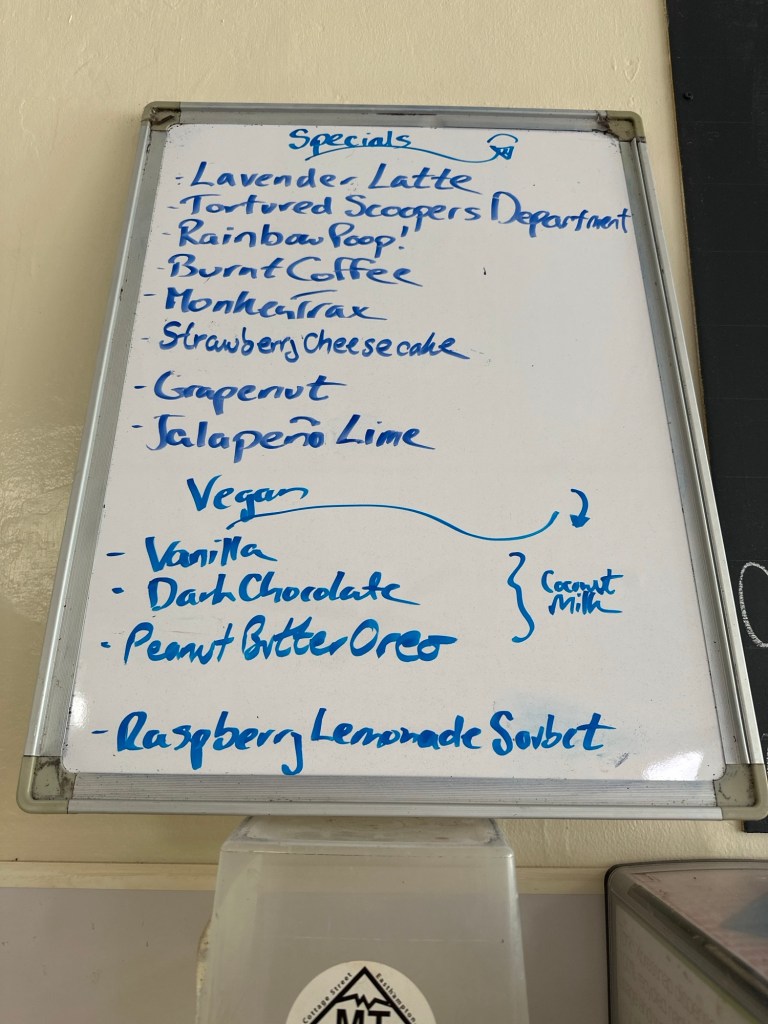 Specials
- Lavender Latte
- Tortured Scoopers Department
- Rainbow Poop!
- Burnt Coffee
- MonkeyTrax
- Strawberry Cheesecake
- Grapenut
- Jalapeño Lime
Vegan
- Vanilla
- Dark Chocolate
- Peanut Butter Oreo
} Coconut
Milk
- Raspberry Lemonade Sorbet
Cottage Street
Easthampton
MT